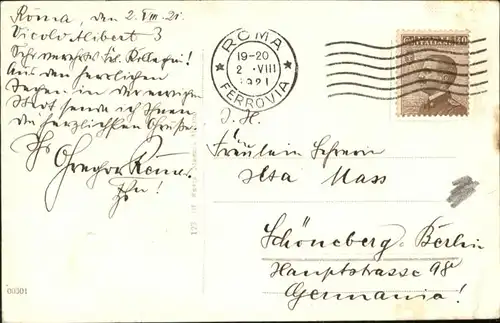 Roma, den 2. VIII. 21.
Vicolo Alibert 3
Sehr verehrtes Frl. Kollegin!
Aus den herrlichen
Tagen in der ewigen
Stadt sende ich Ihnen
die herzlichsten Grüße.
Ihr
Gregor
ROMA
19-20
2 · VIII
1921
FERROVIA
Fräulein Lehrerin
Ilsa Mass
Schöneberg-Berlin
Hauptstrasse 98
Germania!
00301